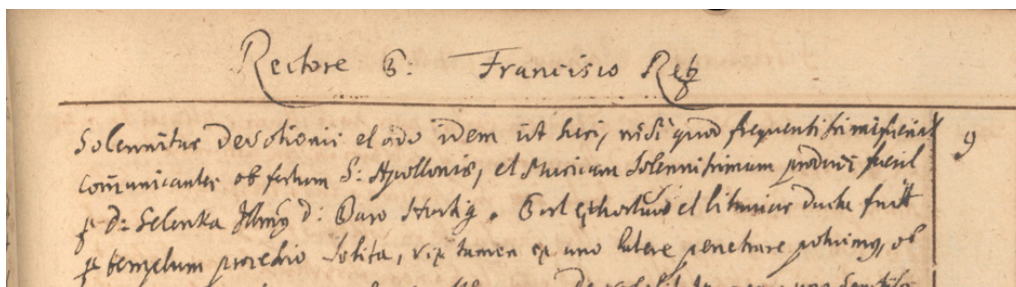 Rectore P. Francisco Retz
Solennitas Devotionis et ordo idem ut heri, nisi quod frequentissimi fuerint 9
communicantes ob festum S. Apolloniæ, et Musicam solennissimam produxi fecit
p D. Selenka Illmg D. Baro Hartig. Post et litanias ducta fuit
p templum processio solita, vix tamen ex uno latere penetrare potuimq, ob